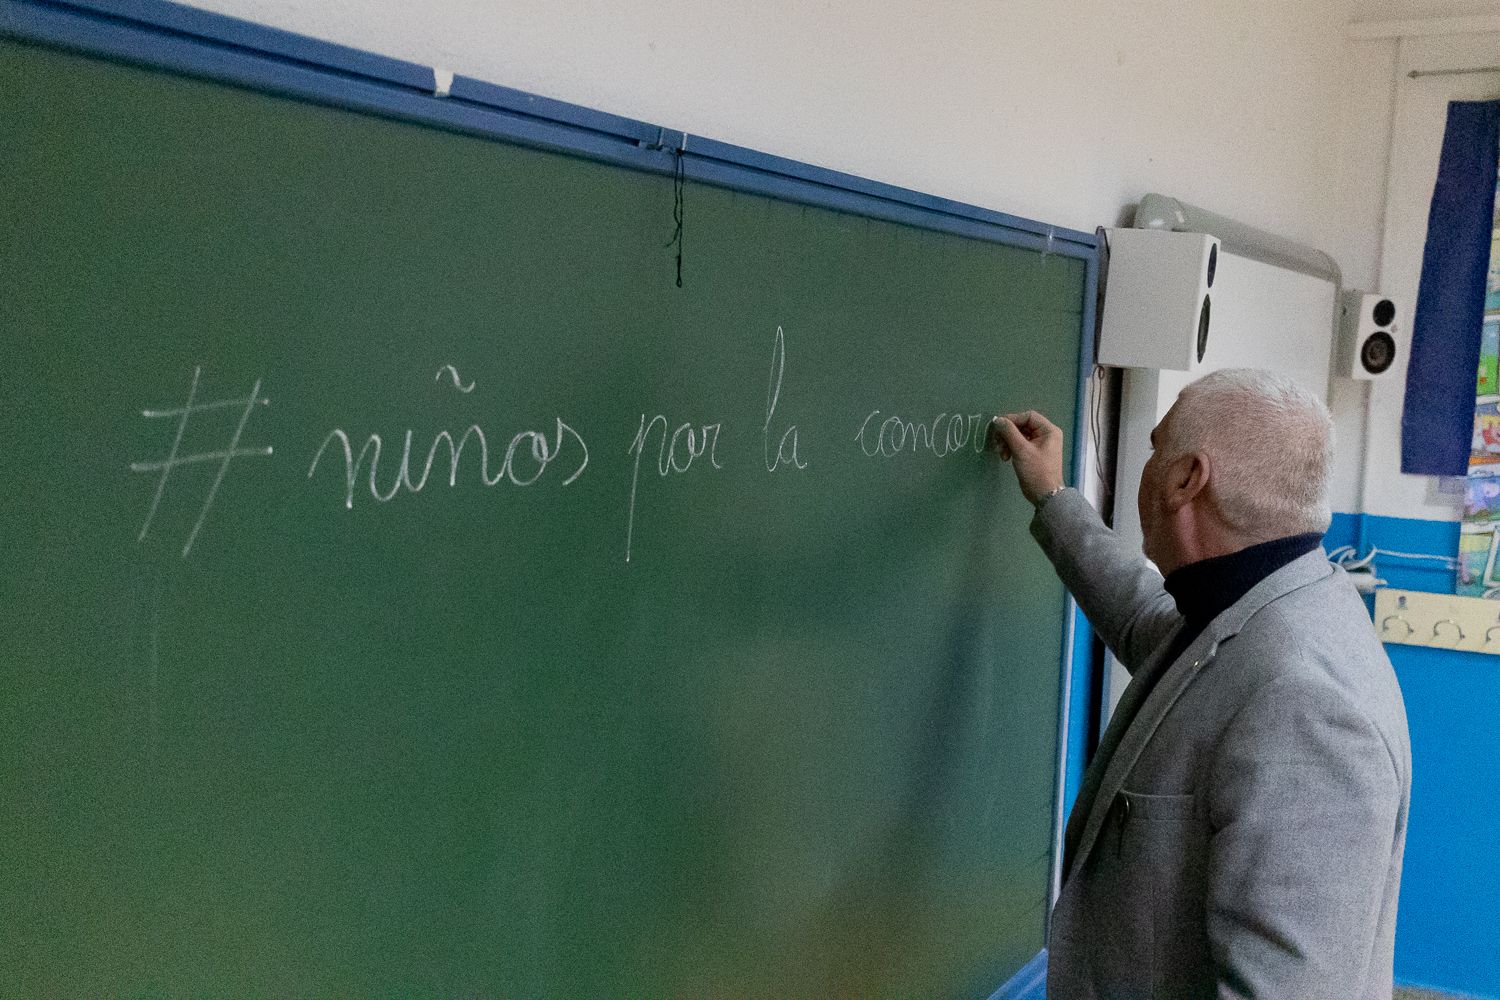 # niños por la concor